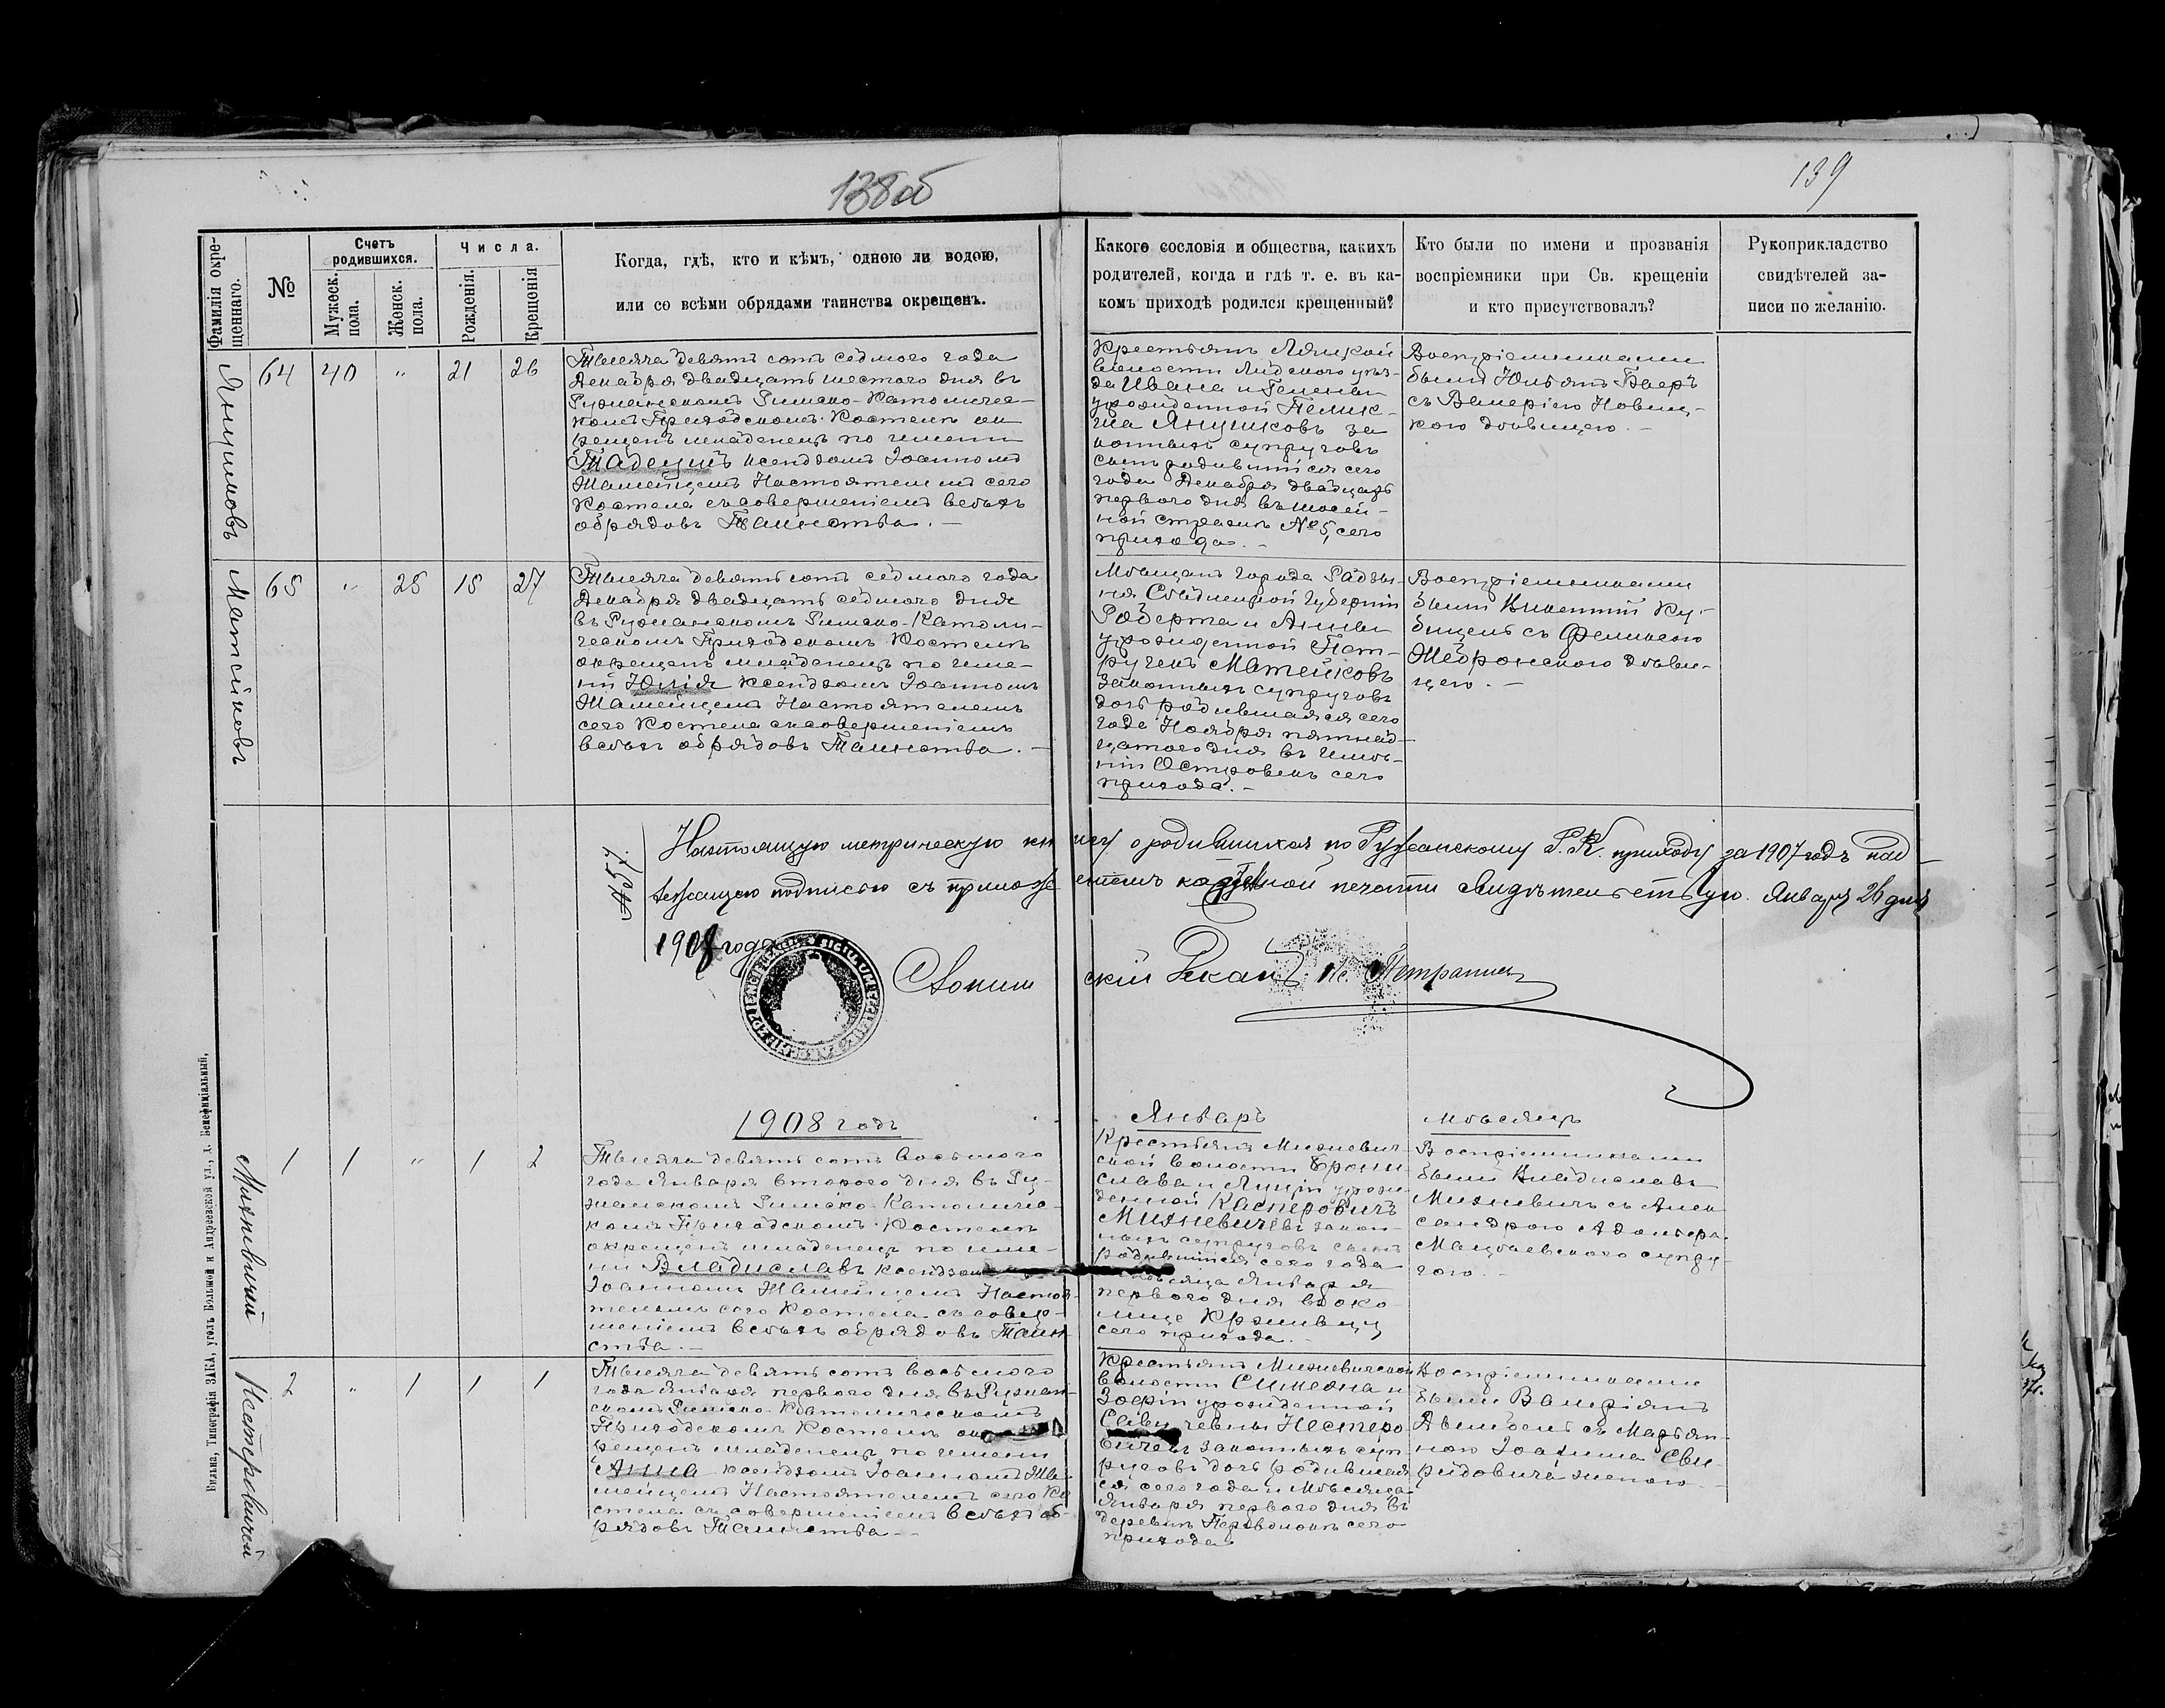 138об
139
Фамилія окрещеннаго.
№
Счетъ родившихся.
Мужеск. пола.
Женск. пола.
Числа.
Рожденія.
Крещенія
Когда, гдѣ, кто и кѣмъ, одною ли водою,
или со всѣми обрядами таинства окрещенъ.
Какого сословія и общества, какихъ
родителей, когда и гдѣ т. е. въ ка-
комъ приходѣ родился крещенный?
Кто были по имени и прозванія
воспріемники при Св. крещеніи
и кто присутствовалъ?
Рукоприкладство
свидѣтелей за-
писи по желанію.
64 40 „ 21 26
Тысяча девять сотъ седмого года
Декабря двадцать шестого дня въ
Ружанскомъ Римско-Католичес-
комъ Приходскомъ Костелѣ ок
рещенъ младенецъ по имени
Тадеушъ ксендзомъ Іоанномъ
Настоятелемъ сего
Костела съ совершеніемъ всѣхъ
обрядовъ Таинства. —
Крестьянъ
волости Лидского уѣз-
да Ивана и Гелены
урожденной
за
конныхъ супруговъ
сынъ родившійся сего
года Декабря двадцать
первого дня въ шосей-
ной стражнѣ № 5, сего
прихода. —
Воспріемниками
были Юльянъ
съ Валеріею Новиц-
кою дѣвицею. —
Матейковъ
65 „ 25 15 27
Тысяча девять сотъ седмого года
Декабря двадцать седмого дня
въ Ружанскомъ Римско-Католи-
ческомъ Приходскомъ Костелѣ
окрещенъ младенецъ по име-
ни Юлія ксендзомъ Іоанномъ
Настоятелемъ
сего Костела съ совершеніемъ
всѣхъ обрядовъ Таинства. —
Мѣщанъ города Радзы-
ня Сѣдлецкой Губерніи
Роберта и Анны
урожденной Пет-
ручекъ Матейковъ
законныхъ супруговъ
дочь родившаяся сего
года Ноября пятнад-
цатого дня въ имѣ-
ніи Островекъ сего
прихода. —
Воспріемниками
были Викентій Ку-
бицкій съ Феликсою
дѣви-
цею. —
№ 57.
Настоящую метрическую книгу о родившихся по Ружанскому Р. К. приходу за 1907 годъ над-
лежащею подписью съ приложеніемъ казенной печати свидѣтельствую. Января 26 дня
1908 года
Слонимскій Деканъ Кс.
1908 годъ
Январь
мѣсяцъ
1 1 „ 1 2
Тысяча девять сотъ восьмого
года Января второго дня въ Ру-
жанскомъ Римско-Католичес-
комъ Приходскомъ Костелѣ
окрещенъ младенецъ по име-
ни Владиславъ ксендзом
Іоанномъ Настоя
телемъ сего Костела съ совер-
шеніемъ всѣхъ обрядовъ Таин
ства. —
Крестьянъ Михневич-
ской волости Брони-
слава и Люціи урож-
денной Касперовичъ
Михневичевъ закон-
ныхъ супруговъ сынъ
родившійся сего года
мѣсяца Января
первого дня въ око-
лице
сего прихода. —
Воспріемниками
были Владиславъ
Михневичъ съ Алек
сандрою Адольфа
супру-
гою. —
2 „ 1 1 1
Тысяча девять сотъ восьмого
года Января первого дня въ Ружан-
скомъ Римско-Католическомъ
Приходскомъ Костелѣ ок
рещенъ младенецъ по имени
Анна ксендзомъ Іоанномъ
Настоятелемъ сего Ко
стела съ совершеніемъ всѣхъ об-
рядовъ Таинства —
Крестьянъ Михневичской
волости Симеона и
Зофіи урожденной
Нестеро
вичевъ законныхъ суп
руговъ дочь родившая
ся сего года и мѣсяца
Января первого дня въ
деревнѣ сего
прихода
Воспріемниками
были Валеріянъ
съ Марьян-
ною Іоахима Сви-
ридовича женою —
Вильна, Типографія ЗАКА, уголъ Большой и Андреевской ул., д. Бенефиціальный,